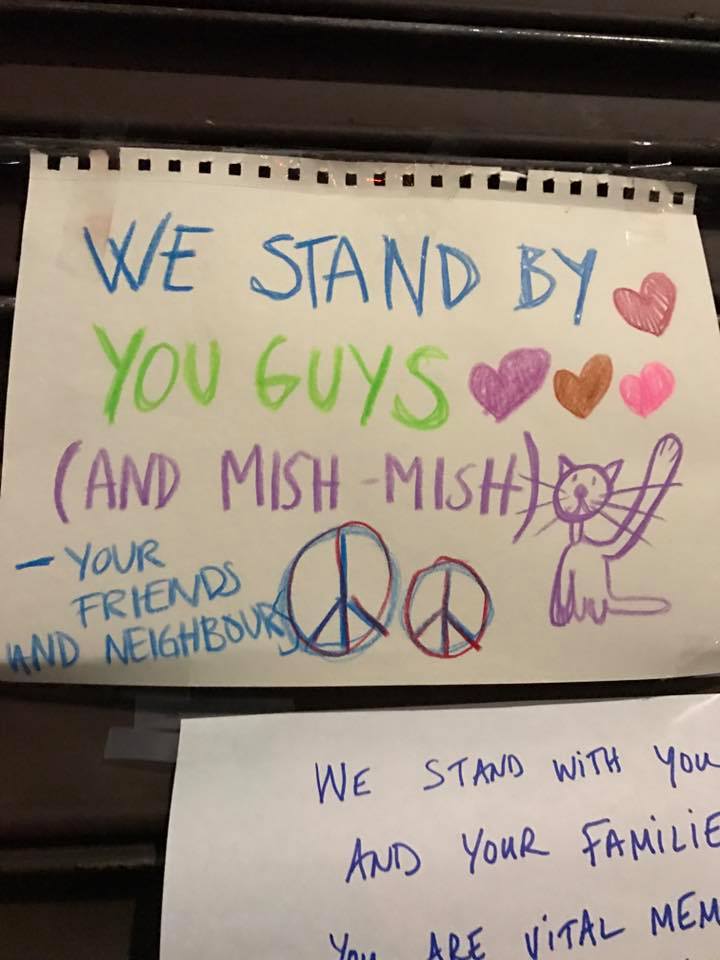 WE STAND BY
YOU GUYS
(AND MISH-MISH)
- YOUR
FRIENDS
AND NEIGHBOURS
WE STAND WITH YOU
AND YOUR
YOU ARE VITAL